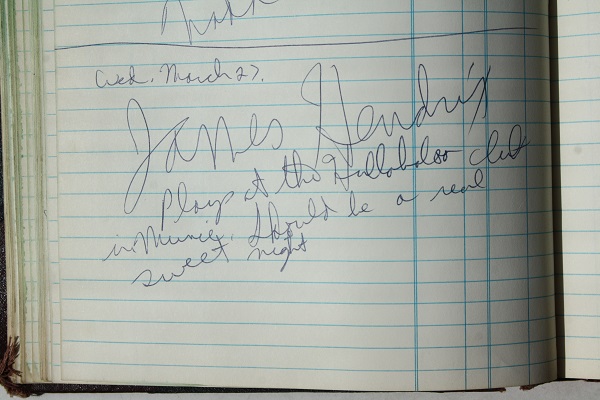 Wed. March 27.
James Hendrix
plays at the Hullabaloo club
in Muncie. Should be a real
sweet night